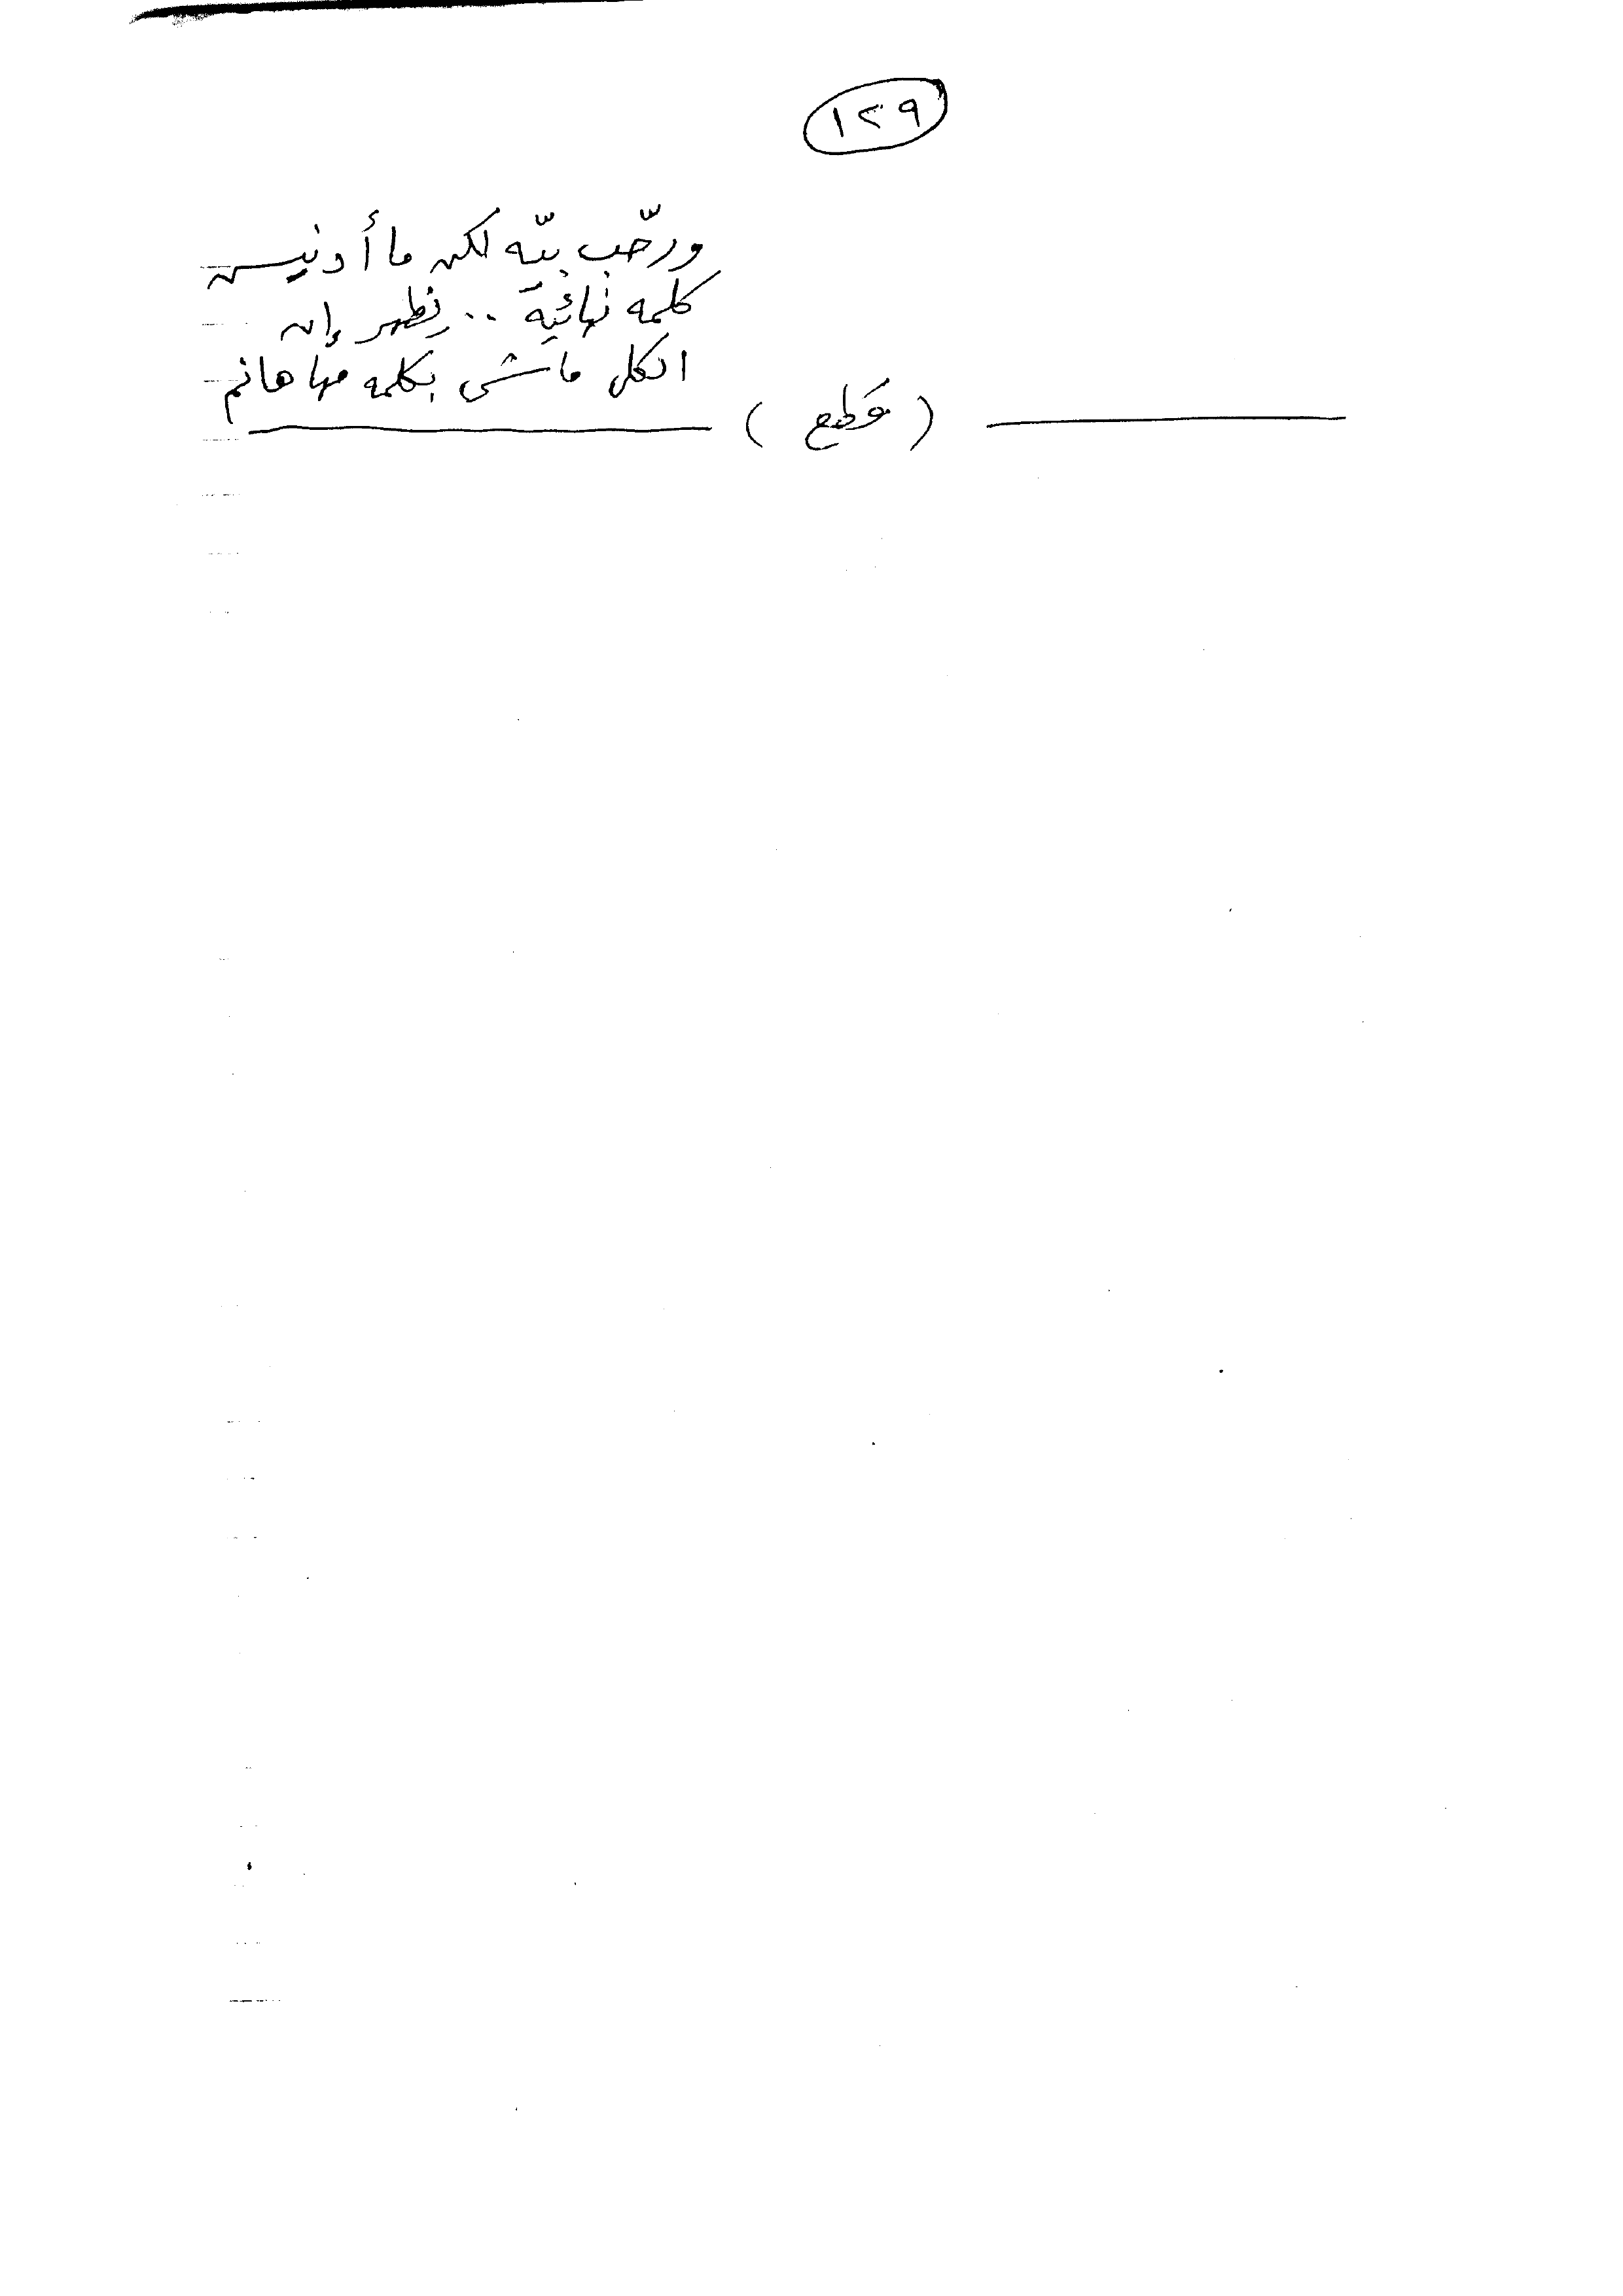 ١٢٩
ورحّب بيّه لكن ما أدنيس
كلمه نهائية .. يظهر إن
الكل ماشى بكلمه مها هانم
( قطع )